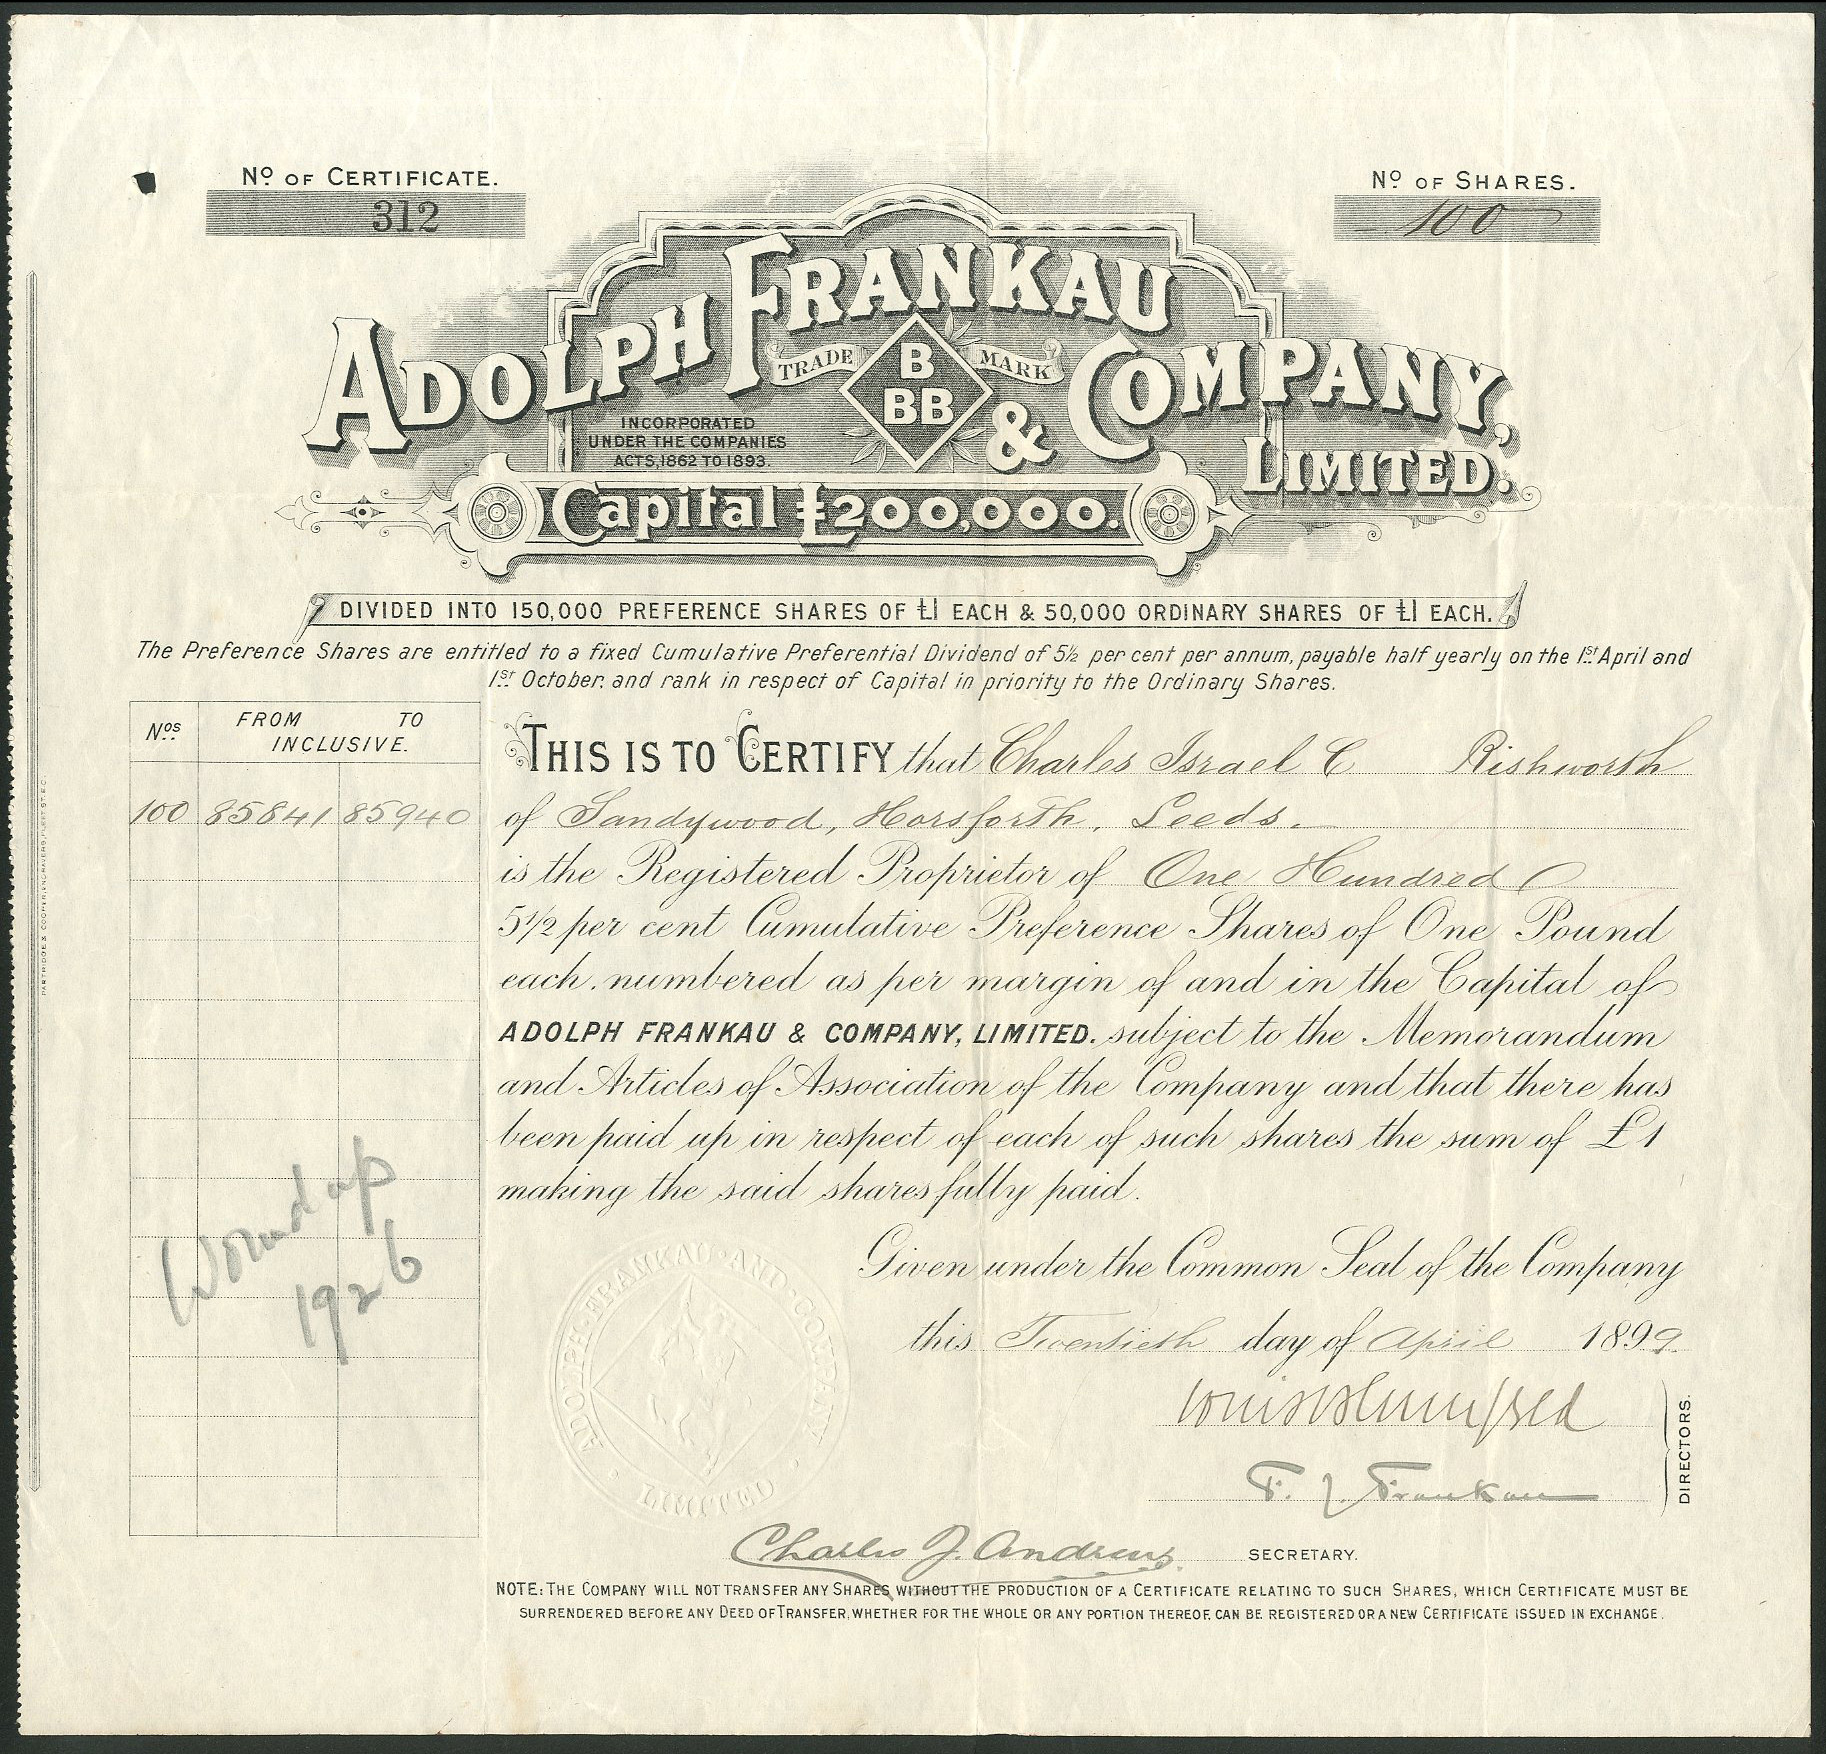 Nº OF CERTIFICATE.
312
Nº OF SHARES.
100
ADOLPH FRANKAU & COMPANY,
LIMITED.
TRADE MARK
B
BB
INCORPORATED
UNDER THE COMPANIES
ACTS, 1862 TO 1893.
Capital £200,000.
DIVIDED INTO 150,000 PREFERENCE SHARES OF £1 EACH & 50,000 ORDINARY SHARES OF £1 EACH.
The Preference Shares are entitled to a fixed Cumulative Preferential Dividend of 5½ per cent per annum, payable half yearly on the 1st April and
1st October, and rank in respect of Capital in priority to the Ordinary Shares.
Nos FROM TO
INCLUSIVE.
100 85841 85940
Wound up
1926
THIS IS TO CERTIFY that Charles Israel C Rishworth
of Sandywood, Horsforth, Leeds.
is the Registered Proprietor of One Hundred
5½ per cent Cumulative Preference Shares of One Pound
each, numbered as per margin of and in the Capital of
ADOLPH FRANKAU & COMPANY, LIMITED. subject to the Memorandum
and Articles of Association of the Company and that there has
been paid up in respect of each of such shares the sum of £1
making the said shares fully paid.
Given under the Common Seal of the Company
this Twentieth day of April 1899.
F. J. Frankau
DIRECTORS.
Charles J. Andrews
SECRETARY.
NOTE: THE COMPANY WILL NOT TRANSFER ANY SHARES WITHOUT THE PRODUCTION OF A CERTIFICATE RELATING TO SUCH SHARES, WHICH CERTIFICATE MUST BE
SURRENDERED BEFORE ANY DEED OF TRANSFER, WHETHER FOR THE WHOLE OR ANY PORTION THEREOF, CAN BE REGISTERED OR A NEW CERTIFICATE ISSUED IN EXCHANGE.
ADOLPH FRANKAU AND COMPANY
LIMITED
PARTRIDGE & COOPER, ENGRAVERS, FLEET ST. E.C.